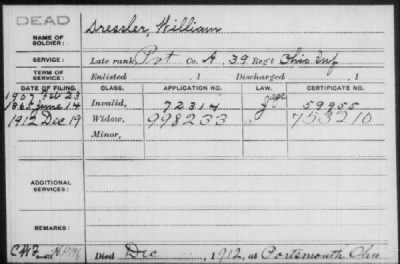 DEAD
NAME OF SOLDIER: Dressler, William
SERVICE: Late rank, Pvt Co. A, 39 Reg't Ohio Inf
TERM OF SERVICE: Enlisted , 1 Discharged , 1
DATE OF FILING. CLASS. APPLICATION NO. LAW. CERTIFICATE NO.
1907 Feb 23
June 14 Invalid, 72314 59955
1912 Dec 19 Widow, 998233 753210
Minor,
ADDITIONAL SERVICES:
REMARKS:
Died Dec , 1912, at Portsmouth Ohio